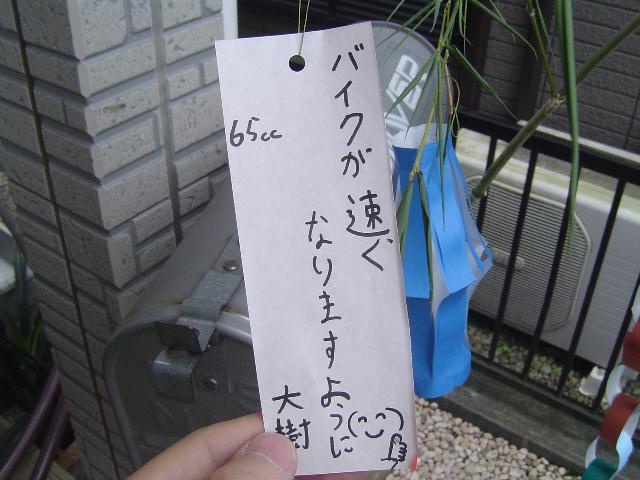 バイクが速く
なりますように
65cc
大樹